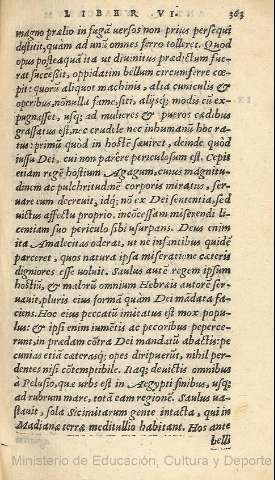 LIBER VI. 363
magno prælio in fugā uersos non prius persequi
destitit, quàm ad unū omnes ferro tolleret. Quod
opus posteaquā ita ut diuinitus prædictum fue-
rat successit, oppidatim bellum circumferre cœ-
pit: quorū aliquot machinis, alia cuniculis &
operibus, nōnulla fame, siti, alijsq; modis cū ex-
pugnasset, usq; ad mulieres & pueros cædibus
grassatus est, nec crudele nec inhumanū hoc ra-
tus: primū quòd in hoste sæuiret, deinde quòd
iussu Dei, cui non parêre periculosum est. Cepit
etiam regē hostium Agagum, cuius magnitu-
dinem ac pulchritudinē corporis miratus, ser-
uare eum decreuit, idq; nō ex Dei sententia, sed
uictus affectu proprio, incōcessam miserendi li-
centiam suo periculo sibi usurpans. Deus enim
ita Amalecitas oderat, ut ne infantibus quidē
parceret, quos natura ipsa miseratione cæteris
digniores esse uoluit. Saulus autē regem ipsum
hostiū, & malorū omnium Hebræis autorē ser-
uauit, pluris eius formā quàm Dei mādata fa-
ciens. Hoc eius peccatū imitatus est mox popu-
lus: & ipsi enim iumētis ac pecoribus peperce-
runt, in prædam cōtra Dei mandatū abactis: pe
cunias etiā cæterasq; opes diripuerūt, nihil per-
dentes nisi cōtemptibile. Itaq; deuictis omnibus
à Pelusio, quæ urbs est in Aegypti finibus, usq;
ad rubrum mare, totā eam regionē Saulus ua-
stauit, sola Sicimitarum gente intacta, qui in
Madianæ terræ meditullio habitant. Hos ante
belli
Ministerio de Educación, Cultura y Deporte